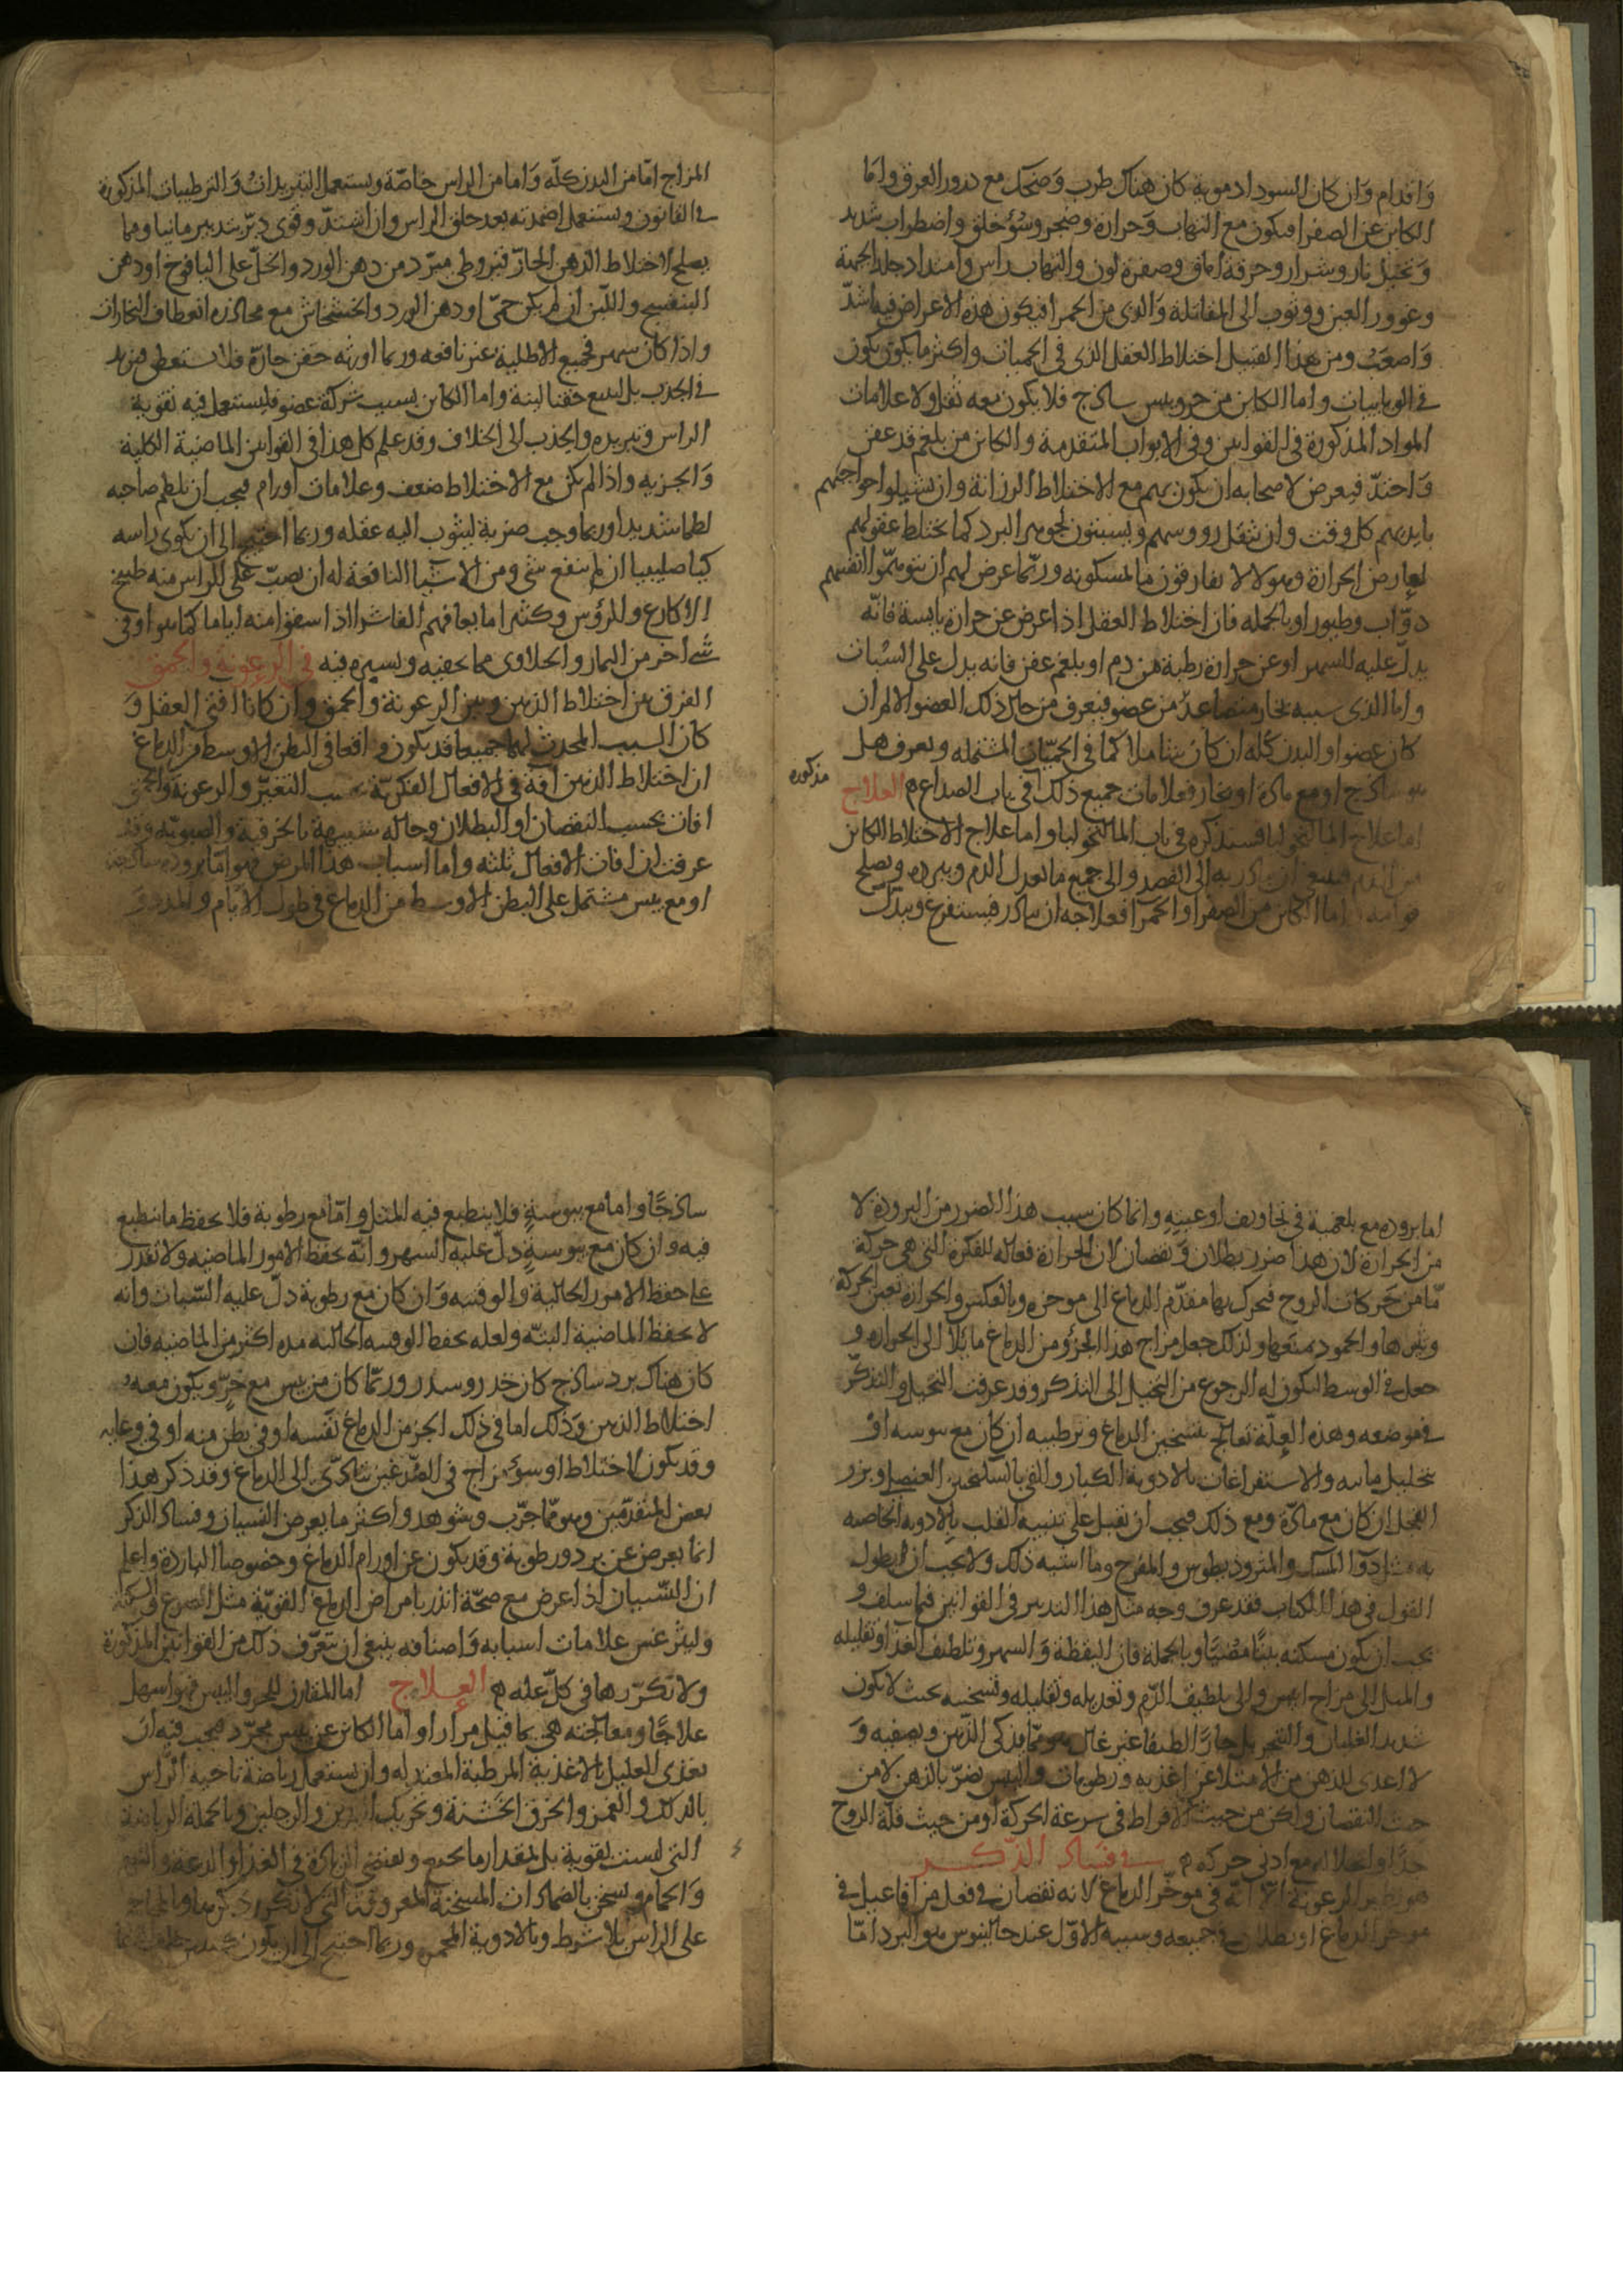 واقدام وان كان السودا دموية كان هناك طرب وضحك مع درور العرق واما
الكاين عن الصفرا فيكون مع التهاب وحرارة وضجر وسوء خلق واضطراب شديد
وتخيل نار وشرار وحرقة اماق وصفرة لون والتهاب راس وامتداد جلد الجبهة
وغوور العين ووثوب الى المقاتلة والذى من الحمرا فيكون هذه الاعراض فيه اشد
واصعب ومن هذا القبيل اختلاط العقل الذى فى الحميات واكثر ما يكون يكون
فى الوبائيات واما الكاين من حر ويبس ساذج فلا يكون معه ثقل ولا علامات
المواد المذكورة فى القوانين وفى الابواب المتقدمة والكاين من بلغم قد عفن
واحتد فيعرض لاصحابه ان يكون بهم مع الاختلاط الرزانة وان يشيلوا حواجبهم
بايديهم كل وقت وان تثقل رووسهم ويسبتون لجوهر البرد كما تختلط عقولهم
لعارض الحرارة وهولا لا يفارقون ما يمسكونه وربما عرض لهم ان يتوهموا انفسهم
دواب وطيور او بالجمله فان اختلاط العقل اذا عرض عن حرارة يابسة فانه
يدل عليه السهر او عن حرارة رطبة من دم او بلغم عفن فانه يدل على السبات
واما الذى سببه بخار متصاعد من عضو فيعرف من حال ذلك العضو الالم ان
كان عضوا او البدن كله ان كان شاملا كما فى الحميات المشتمله ويعرف هل
هو ساذج او مع مادة او بخار فعلامات جميع ذلك فى باب الصداع العلاج
مذكوره
اما علاج المالنخوليا فسنذكره فى باب المالنخوليا واما علاج الاختلاط الكاين
من الدم فينبغى ان يبادر به الى الفصد والى جميع ما يعدل الدم ويبرده ويصلح
قوامه واما الكاين من الصفرا او الحمرا فعلاجه ان يبادر فيستفرغ ويبدل
المزاج اما من البدن كله واما من الراس خاصة ويستعمل التبريدات والترطيبات المذكورة
فى القانون ويستعمل اضمدته بعد حلق الراس وان اشتد وقوى دبر بتدبير مانيا ومما
يصلح لاختلاط الذهن الحار قيروطى مبرد من دهن الورد والخل على اليافوخ او دهن
البنفسج واللبن ان لم يكن حمى او دهن الورد والخشخاش مع محاذره انعطاف البخارات
واذا كان سهر فجميع الاطلية غير نافعه وربما اورثه حقن حارة فلا تستعط فيزيد
فى الجذب بل ليتبع حقنا لينة واما الكاين بسبب شركة عضو فليستعمل فيه تقوية
الراس وتبريده والجذب الى الخلاف وقد علم كل هذا فى القوانين الماضية الكلية
والجزيه واذا لم يكن مع الاختلاط ضعف وعلامات اورام فيجب ان يلطم صاحبه
لطما شديدا وربما وجب ضربة ليثوب اليه عقله وربما احتيج الى ان يكوى راسه
كيا صليبيا ان لم ينفع شى ومن الاشيا النافعة له ان يصب على الراس منه طبيخ
الاكارع والروس وكثيرا ما يعافيهم الفاشرا اذا سقوا منه اياما كما هو او فى
شى آخر من الثمار والحلاوى مما يخفيه ويستره فيه فى الرعونة والحمق
الفرق بين اختلاط الذهن وبين الرعونة والحمق وان كانا افتى العقل و
كان السبب المحدث لهما جميعا قد يكون واقعا فى البطن الاوسط من الدماغ
ان اختلاط الذهن آفة فى الافعال الفكرية بحسب التغير والرعونة والحمق
افات بحسب النقصان او البطلان وحاله شبيهة بالخرفية والصبوته وقد
عرفت ان افات الافعال ثلثه واما اسباب هذا المرض فهو اما برودة ساذجة
او مع يبس مشتمل على البطن الاوسط من الدماغ فى طول الايام والمدد و
اما برودة مع بلغمية فى تجاويف اوعيته وانما كان سبب هذا الضرر من البرودة لا
من الحرارة لان هذا ضرر بطلان ونقصان لان الحرارة فعاله للفكرة التى هى حركة
ما من حركات الروح فتحرك بها مقدم الدماغ الى موخره وبالعكس والحرارة تعين الحركة
وتثيرها والجمود يمنعها ولذلك جعل مزاج هذا الجزو من الدماغ مايلا الى الحراره و
جعل فى الوسط ليكون له الرجوع من التخيل الى التذكر وقد عرفت التخيل والتذكر
فى موضعه وهذه العلة تعالج بتسخين الدماغ وترطيبه ان كان مع يبوسه او
بتحليل مابه والاستفراغات بالادوية الكبار والقى بالسكنجبين العنصلى وبزر
الفجل ان كان مع مادة ومع ذلك فيجب ان تقبل على تنبيه القلب بالادويه الخاصه
به مثل دوا المسك والمثروديطوس والمفرح وما اشبه ذلك ولا يجب ان يطول
القول فى هذا الكتاب فقد عرف وجه مثل هذا التدبير فى القوانين فيما سلف و
يجب ان يكون مسكنه بيتا مضيا وبالجملة فان اليقظة والسهر وتلطيف الغذا وتقليله
والميل الى مزاج ايبس والى تلطيف الدم وتعديله وتقليله وتسخينه بحيث لا يكون
شديد الغليان والتبخر بل حارا لطيفا غير غال هو مما يذكى الذهن ويصفيه و
لا اعدى للذهن من الامتلا عن اغذيه ورطوبات واليبس يضر بالذهن لا من
حيث النقصان ولكن من حيث الافراط فى سرعة الحركة او من حيث قلة الروح
جدا وانحلاله مع ادنى حركه فى فساد الذكر
هو نظير الرعونة الا انه فى موخر الدماغ لانه نقصان فى فعل من افاعيل فى
موخر الدماغ او بطلان فى جميعه وسببه الاول عند جالينوس هو البرد اما
ساذجا واما مع يبوسة فلا ينطبع فيه المثل واما مع رطوبة فلا يحفظ ما ينطبع
فيه وان كان مع يبوسة دل عليه السهر وانه يحفظ الامور الماضيه ولا تقدر
على حفظ الامور الحالية والوقتيه وان كان مع رطوبة دل عليه السبات وانه
لا يحفظ الماضية البتة ولعله يحفظ الوقتيه الحاليه مده اكثر من الماضيه فان
كان هناك برد ساذج كان خدر وسدر وربما كان من يبس مع حر ويكون معه
اختلاط الذهن وذلك اما فى ذلك الجز من الدماغ نفسه او فى بطن منه او فى وعايه
وقد يكون لاختلاط او سوء مزاج فى الصدغين يتادى الى الدماغ وقد ذكر هذا
بعض المتقدمين وهو مما جرب وشوهد واكثر ما يعرض النسيان وفساد الذكر
انما يعرض عن برد ورطوبة وقد يكون عن اورام الدماغ وخصوصا الباردة واعلم
ان النسيان اذا عرض مع صحة انذر بامراض الدماغ القوية مثل الصرع والسكتة
وليثرغس علامات اسبابه واصنافه ينبغى ان تتعرف ذلك من القوانين المذكورة
ولا نكررها فى كل عله العلاج اما المقارن للحر واليبس فهو اسهل
علاجا ومعالجته هى بما قيل مرارا واما الكاين عن يبس مجرد فيجب فيه ان
يغذى العليل بالاغذية المرطبة المعتدله وان يستعمل رياضة ناحيه الراس
بالدلك والغمز والخرق الخشنة وتحريك اليدين والرجلين وبالجملة الرياضة
التى ليست بقوية بل بمقدار ما يحتمه ويقتضى الزيادة فى الغذا والدعة والنوم
والحمام وتسخن بالضمادات المسخنة المعروفة التى لا نكرر ذكرها وبالمحاجم
على الراس بلا شرط وبالادوية المحمرة وربما احتيج الى ان يكون